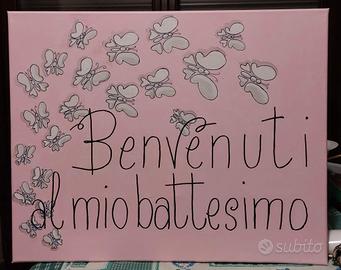 Benvenuti
al mio battesimo
subito